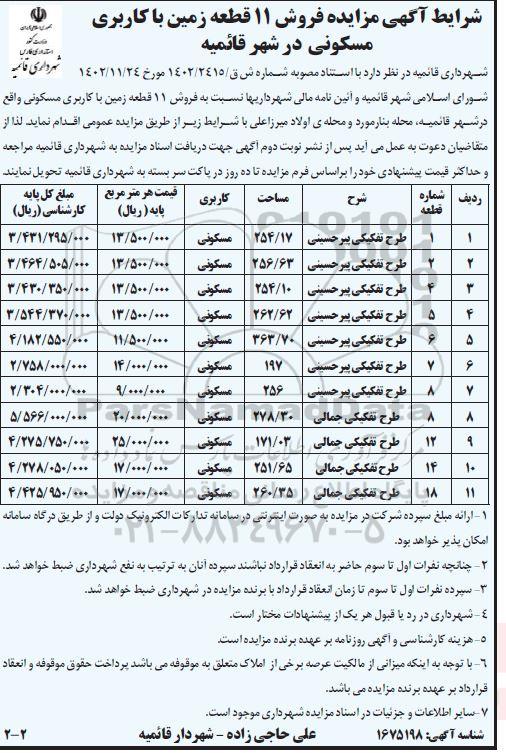 شرایط آگهی مزایده فروش ۱۱ قطعه زمین با کاربری
مسکونی در شهر قائمیه
جمهوری اسلامی ایران
وزارت کشور
استانداری فارس
شهرداری قائمیه
شهرداری قائمیه در نظر دارد با استناد مصوبه شماره ش ق/۱۴۰۲/۲۴۱۵ مورخ ۱۴۰۲/۱۱/۲۴
شورای اسلامی شهر قائمیه و آئین نامه مالی شهرداریها نسبت به فروش ۱۱ قطعه زمین با کاربری مسکونی واقع
در شهر قائمیه، محله بنارمورد و محله ی اولاد میرزاعلی با شرایط زیر از طریق مزایده عمومی اقدام نماید. لذا از
متقاضیان دعوت به عمل می آید پس از نشر نوبت دوم آگهی جهت دریافت اسناد مزایده به شهرداری قائمیه مراجعه
و حداکثر قیمت پیشنهادی خود را براساس فرم مزایده تا ده روز در پاکت سر بسته به شهرداری قائمیه تحویل نمایند.
ردیف شماره قطعه شرح مساحت کاربری قیمت هر متر مربع پایه (ریال) مبلغ کل پایه کارشناسی (ریال)
۱ ۱ طرح تفکیکی پیرحسینی ۲۵۴/۱۷ مسکونی ۱۳/۵۰۰/۰۰۰ ۳/۴۳۱/۲۹۵/۰۰۰
۲ ۲ طرح تفکیکی پیرحسینی ۲۵۶/۶۳ مسکونی ۱۳/۵۰۰/۰۰۰ ۳/۴۶۴/۵۰۵/۰۰۰
۳ ۴ طرح تفکیکی پیرحسینی ۲۵۴/۱۰ مسکونی ۱۳/۵۰۰/۰۰۰ ۳/۴۳۰/۳۵۰/۰۰۰
۴ ۵ طرح تفکیکی پیرحسینی ۲۶۲/۶۲ مسکونی ۱۳/۵۰۰/۰۰۰ ۳/۵۴۴/۳۷۰/۰۰۰
۵ ۶ طرح تفکیکی پیرحسینی ۳۶۳/۷۰ مسکونی ۱۱/۵۰۰/۰۰۰ ۴/۱۸۲/۵۵۰/۰۰۰
۶ ۷ طرح تفکیکی پیرحسینی ۱۹۷ مسکونی ۱۴/۰۰۰/۰۰۰ ۲/۷۵۸/۰۰۰/۰۰۰
۷ ۸ طرح تفکیکی پیرحسینی ۲۵۶ مسکونی ۹/۰۰۰/۰۰۰ ۲/۳۰۴/۰۰۰/۰۰۰
۸ ۸ طرح تفکیکی جمالی ۲۷۸/۳۰ مسکونی ۲۰/۰۰۰/۰۰۰ ۵/۵۶۶/۰۰۰/۰۰۰
۹ ۱۲ طرح تفکیکی جمالی ۱۷۱/۰۳ مسکونی ۲۵/۰۰۰/۰۰۰ ۴/۲۷۵/۷۵۰/۰۰۰
۱۰ ۱۴ طرح تفکیکی جمالی ۲۵۱/۶۵ مسکونی ۱۷/۰۰۰/۰۰۰ ۴/۲۷۸/۰۵۰/۰۰۰
۱۱ ۱۸ طرح تفکیکی جمالی ۲۶۰/۳۵ مسکونی ۱۷/۰۰۰/۰۰۰ ۴/۴۲۵/۹۵۰/۰۰۰
ParsNamadData
پایگاه اطلاع رسانی مناقصه و مزایده
۰۲۱-۸۸۳۴۹۶۷۰-۵
۱- ارائه مبلغ سپرده شرکت در مزایده به صورت اینترنتی در سامانه تدارکات الکترونیک دولت و از طریق درگاه سامانه
امکان پذیر خواهد بود.
۲- چنانچه نفرات اول تا سوم حاضر به انعقاد قرارداد نباشند سپرده آنان به ترتیب به نفع شهرداری ضبط خواهد شد.
۳- سپرده نفرات اول تا سوم تا زمان انعقاد قرارداد با برنده مزایده در شهرداری ضبط خواهد شد.
۴- شهرداری در رد یا قبول هر یک از پیشنهادات مختار است.
۵- هزینه کارشناسی و آگهی روزنامه بر عهده برنده مزایده است.
۶- با توجه به اینکه میزانی از مالکیت عرصه برخی از املاک متعلق به موقوفه می باشد پرداخت حقوق موقوفه و انعقاد
قرارداد بر عهده برنده مزایده می باشد.
۷- سایر اطلاعات و جزئیات در اسناد مزایده شهرداری موجود است.
شناسه آگهی: ۱۶۷۵۱۹۸ علی حاجی زاده - شهردار قائمیه ۲-۲